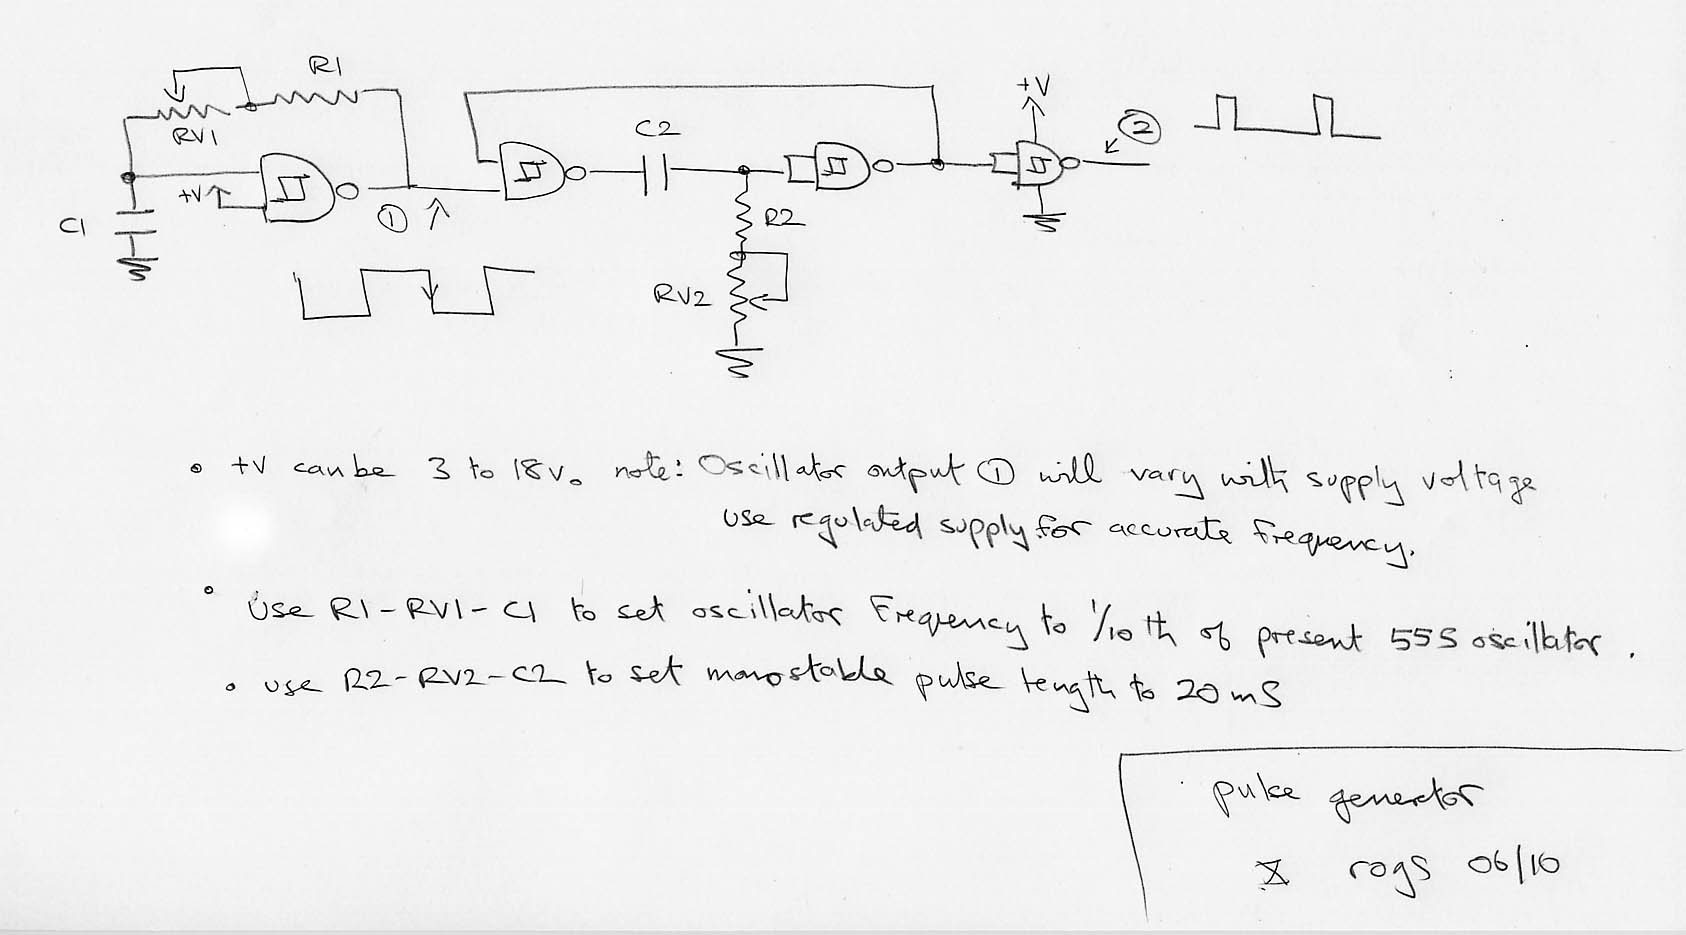 R1
RV1
+V
C1
①
C2
R2
RV2
+V
②
• +V can be 3 to 18v. note: Oscillator output ① will vary with supply voltage
use regulated supply for accurate frequency.
• Use R1-RV1-C1 to set oscillator Frequency to 1/10 th of present 555 oscillator.
• use R2-RV2-C2 to set monostable pulse length to 20mS
pulse generator
rogs 06/10